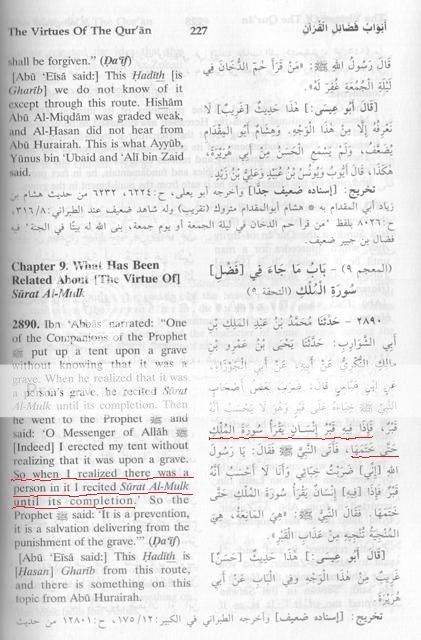 The Virtues Of The Qur'ān 227 أبواب فضائل القرآن
shall be forgiven." (Ḍa'īf)
[Abū 'Eīsā said:] This Ḥadīth [is
Gharīb] we do not know of it
except through this route. Hishām
Abū Al-Miqdām was graded weak,
and Al-Ḥasan did not hear from
Abū Hurairah. This is what Ayyūb,
Yūnus bin 'Ubaid and 'Alī bin Zaid
said.
Chapter 9. What Has Been
Related About [The Virtue Of]
Sūrat Al-Mulk
2890. Ibn 'Abbās narrated: "One
of the Companions of the Prophet
ﷺ put up a tent upon a grave
without knowing that it was a
grave. When he realized that it was
a person's grave, he recited Sūrat
Al-Mulk until its completion. Then
he went to the Prophet ﷺ and
said: 'O Messenger of Allāh ﷺ
[Indeed] I erected my tent without
realizing that it was upon a grave.
So when I realized there was a
person in it I recited Sūrat Al-Mulk
until its completion.' So the
Prophet ﷺ said: 'It is a prevention,
it is a salvation delivering from the
punishment of the grave.'" (Ḍa'īf)
[Abū 'Eīsā said:] This Ḥadīth is
[Ḥasan] Gharīb from this route,
and there is something on this
topic from Abū Hurairah.
قَالَ رَسُولُ اللهِ ﷺ: «مَنْ قَرَأَ حٰم الدُّخَانَ فِي
لَيْلَةِ الْجُمُعَةِ غُفِرَ لَهُ».
[قَالَ أَبُو عِيسَى:] هٰذَا حَدِيثٌ [غَرِيبٌ] لَا
نَعْرِفُهُ إِلَّا مِنْ هٰذَا الْوَجْهِ. وَهِشَامٌ أَبُو الْمِقْدَامِ
يُضَعَّفُ، وَلَمْ يَسْمَعِ الْحَسَنُ مِنْ أَبِي هُرَيْرَةَ،
هٰكَذَا، قَالَ أَيُّوبُ وَيُونُسُ بْنُ عُبَيْدٍ وَعَلِيُّ بْنُ زَيْدٍ.
تخريج: [إسناده ضعيف جدًا] وأخرجه أبو يعلى، ح:٦٢٢٤، ٦٢٣٢ من حديث هشام بن
زياد أبي المقدام به * هشام أبوالمقدام متروك (تقريب) وله شاهد ضعيف عند الطبراني: ٣١٦/٨،
ح:٨٠٢٦ بلفظ "من قرأ حم الدخان في ليلة الجمعة أو يوم جمعة، بنى الله له بيتًا في الجنة" فيه
فضال بن جبير ضعيف.
(المعجم ٩) - بَابُ مَا جَاءَ فِي [فَضْلِ]
سُورَةِ الْمُلْكِ (التحفة ٩)
٢٨٩٠ - حَدَّثَنَا مُحَمَّدُ بْنُ عَبْدِ الْمَلِكِ بْنِ
أَبِي الشَّوَارِبِ: حَدَّثَنَا يَحْيَى بْنُ عَمْرِو بْنِ
مَالِكٍ النُّكْرِيُّ عَنْ أَبِيهِ، عَنْ أَبِي الْجَوْزَاءِ،
عَنِ ابْنِ عَبَّاسٍ قَالَ: ضَرَبَ بَعْضُ أَصْحَابِ
النَّبِيِّ ﷺ خِبَاءَهُ عَلَى قَبْرٍ وَهُوَ لَا يَحْسَبُ أَنَّهُ
قَبْرٌ، فَإِذَا فِيهِ قَبْرُ إِنْسَانٍ يَقْرَأُ سُورَةَ الْمُلْكِ
حَتَّى خَتَمَهَا، فَأَتَى النَّبِيَّ ﷺ فَقَالَ: يَا رَسُولَ
اللهِ [إِنِّي] ضَرَبْتُ خِبَائِي وَأَنَا لَا أَحْسَبُ أَنَّهُ
قَبْرٌ فَإِذَا [فِيهِ] إِنْسَانٌ يَقْرَأُ سُورَةَ الْمُلْكِ حَتَّى
خَتَمَهَا. فَقَالَ النَّبِيُّ ﷺ: «هِيَ الْمَانِعَةُ، هِيَ
الْمُنْجِيَةُ تُنْجِيهِ مِنْ عَذَابِ الْقَبْرِ».
[قَالَ أَبُو عِيسَى:] هٰذَا حَدِيثٌ [حَسَنٌ]
غَرِيبٌ مِنْ هٰذَا الْوَجْهِ وَفِي الْبَابِ عَنْ أَبِي
هُرَيْرَةَ.
تخريج: [إسناده ضعيف] وأخرجه الطبراني في الكبير:١٧٥/١٢، ح:١٢٨٠١ من حديث